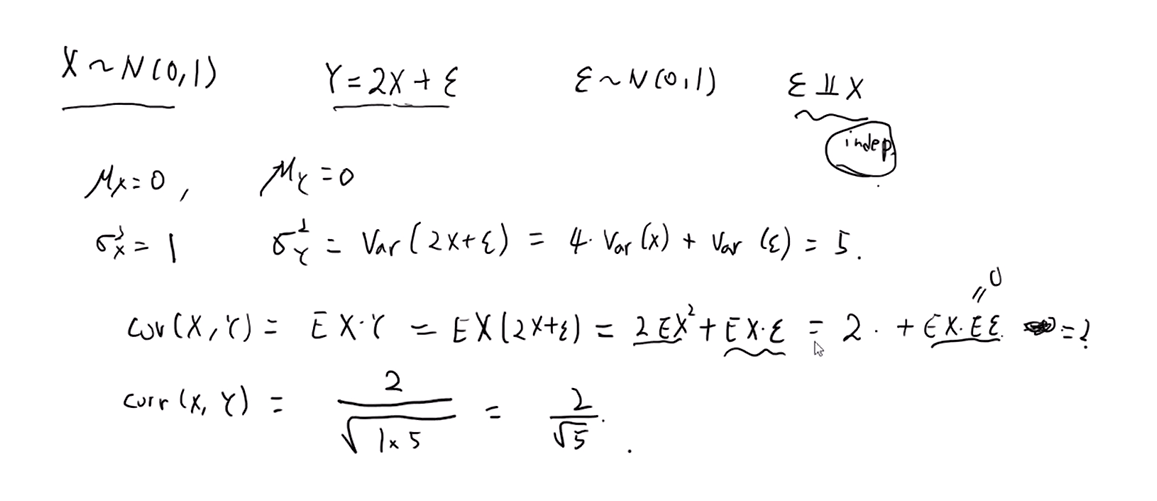 X ~ N(0,1) Y = 2X + ε ε ~ N(0,1) ε ⫫ X
indep.
μ_X = 0, μ_Y = 0
σ_X^2 = 1 σ_Y^2 = Var(2X+ε) = 4·Var(X) + Var(ε) = 5.
= 0
cov(X,Y) = EX·Y = EX(2X+ε) = 2EX^2 + EX·ε = 2 · + EX·Eε = 2
corr(X,Y) = 2/√(1×5) = 2/√5.